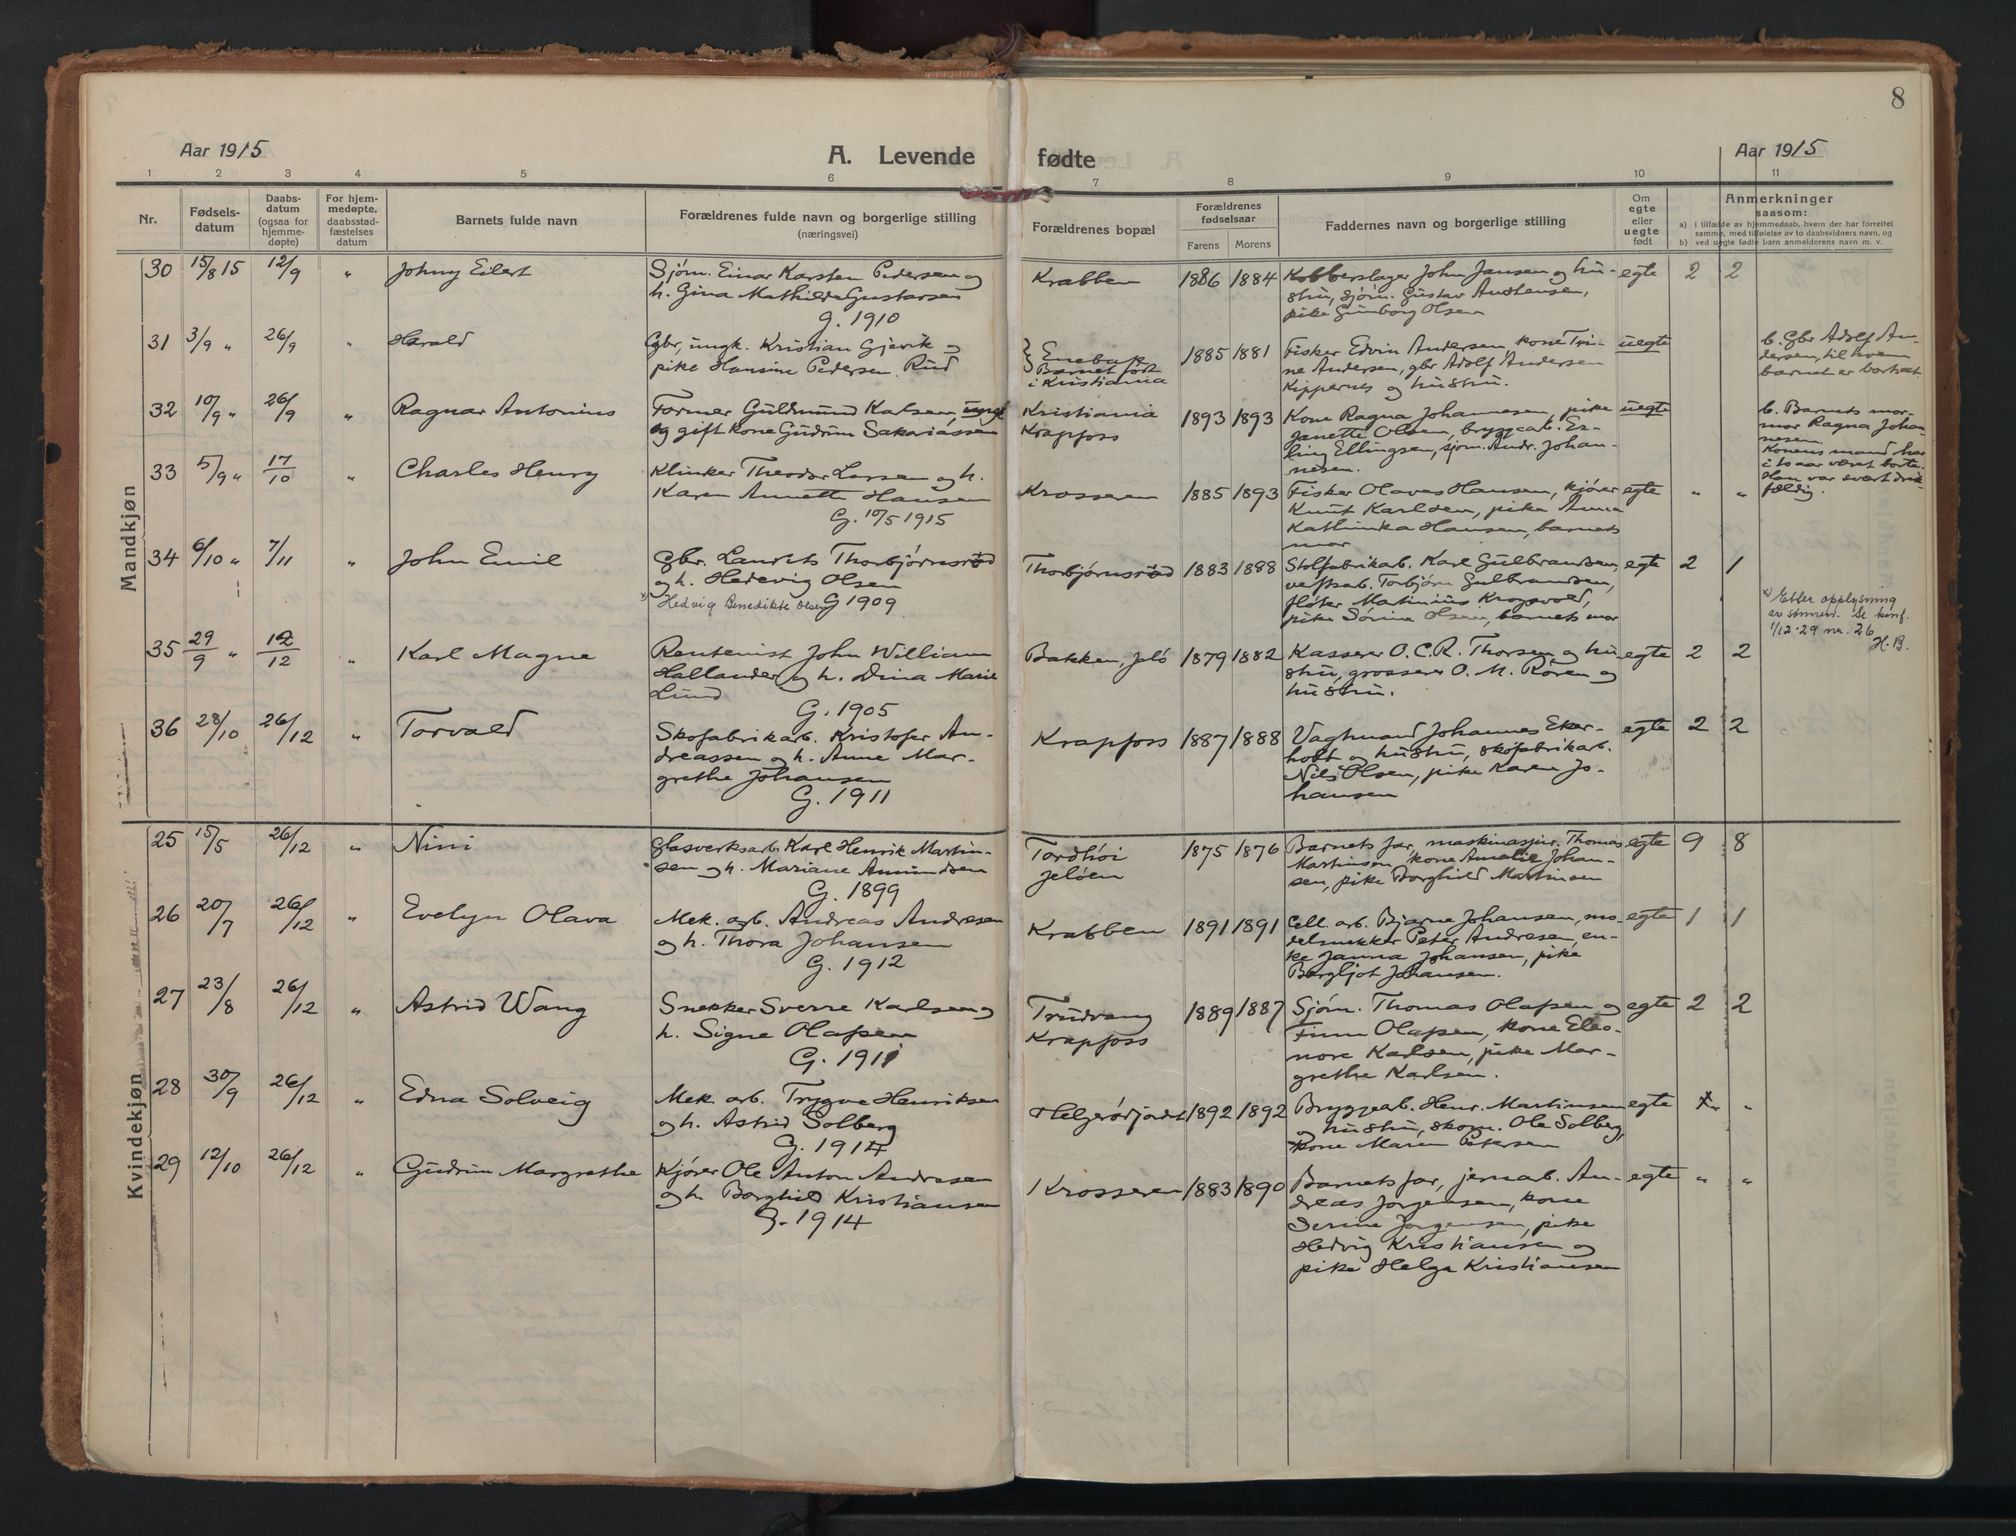 8
Aar 1915
A. Levende fødte
Aar 1915
1 2 3 4 5 6 7 8 9 10 11
Nr.
Fødsels-
datum
Daabs-
datum
(ogsaa for
hjemme-
døpte)
For hjem-
medøpte,
daabsstad-
fæstelses
datum
Barnets fulde navn
Forældrenes fulde navn og borgerlige stilling
(næringsvei)
Forældrenes bopæl
Forældrenes
fødselsaar
Farens Morens
Faddernes navn og borgerlige stilling
Om
egte
eller
uegte
født
Anmerkninger
saasom:
a) i tilfælde av hjemmedaab, hvem der har forrettet
samme, med tilføielse av to daabsvidners navn, og
b) ved uegte fødte barn anmelderens navn m. v.
Mandkjøn
30 15/8 15 12/9 „ Johny Eilert
Sjøm. Einar Karsten Pedersen og
h. Gina Mathilde Gustavsen
G. 1910
Krabben 1886 1884
Kobberslager John Jansen og hu-
stru, sjøm. Gustav Andersen,
pike Gunborg Olsen
egte 2 2
31 3/9 „ 26/9 „ Harald
Gbr, ungk. Kristian Gjevik og
pike Hansine Pedersen Rud
Enebak
Barnet født
i Kristiania
1885 1881
Fisker Edvin Andersen kone Tri-
ne Andersen, gbr Adolf Andersen
Kippenes og hustru.
uegte
b. Gbr Adolf An-
dersen, til hvem
barnet er bortsat.
32 10/9 „ 26/9 „ Ragnar Antonius
Former Guldmund Karlsen, ungk
og gift kone Gudrun Sakariassen
Kristiania
Krapfoss
1893 1893
Kone Ragna Johannesen, pike
Janette Olsen, bryggearb. Er-
ling Ellingsen, sjøm. Andr. Johan-
nesen.
uegte
b. Barnets mor-
mor Ragna Johan-
nesen.
Konens mand har
i to aar været borte.
Han var svært drik-
fældig.
33 5/9 „ 17/10 „ Charles Henry
Klinker Theodor Larsen og h.
Karen Annette Hansen
G. 10/5 1915
Krosseren 1885 1893
Fisker Olaves Hansen, kjører
Knut Karlsen, pike Anna
Kathinka Hansen, barnets
mor
egte „ „
34 6/10 „ 7/11 „ John Emil
Gbr. Laurits Thorbjørnsrød
og h. Hedevig Olsen
x) Hedvig Benedikte Olsen G 1909
Thorbjørnsrød 1883 1888
Stolfabrikarb. Karl Gulbrandsen,
verftsarb. Torbjørn Gulbrandsen,
fløter Martinius Krogsvold,
pike Sørine Olsen, barnets mor
egte 2 1
x) Etter opplysning
av sønnen. Se konf.
1/12-29 nr. 26
H.B.
35 29/9 „ 12/12 „ Karl Magne
Rentenist John William
Hallander og h. Dina Marie
Lund
G. 1905
Bakken, Jelø 1879 1882
Kasserer O. C. R. Thorsen og hu-
stru, grosserer O. M. Røren og
hustru.
egte 2 2
36 28/10 26/12 „ Torvald
Skofabrikarb. Kristofer An-
dreassen og h. Anne Mar-
grethe Johansen
G. 1911
Krapfoss 1887 1888
Vagtmand Johannes Eker-
holt og hustru, skofabrikarb.
Nils Olsen, pike Karen Jo-
hansen
egte 2 2
Kvindekjøn
25 15/5 26/12 „ Nini
Glasverksarb. Karl Henrik Martin-
sen og h. Mariane Amundsen
G. 1899
Tordhøi
Jeløen
1875 1876
Barnets far, maskinasjur. Thomas
Martinsen, kone Amalie Johan-
sen, pike Borghild Martinsen
egte 9 8
26 20/7 26/12 „ Evelyn Olava
Mek. arb. Andreas Andresen
og h. Thora Johansen
G. 1912
Krabben 1891 1891
Cell. arb. Bjarne Johansen, mo-
delsnekker Peter Andresen, en-
ke Janna Johansen, pike
Bergljot Johansen.
egte 1 1
27 23/8 26/12 „ Astrid Wang
Snekker Sverre Karlsen og
h. Signe Olafsen
G. 1911
Trudvang
Krapfoss
1889 1887
Sjøm. Thomas Olafsen og
Finn Olafsen, kone Eleo-
nore Karlsen, pike Mar-
grethe Karlsen.
egte 2 2
28 30/9 26/12 „ Edna Solveig
Mek. arb. Trygve Henriksen
og h. Astrid Solberg
G. 1914
Helgerødjordet 1892 1892
Bryggearb. Henr. Martinsen
og hustru, skom. Ole Solberg,
kone Maren Petersen
egte „
29 12/10 26/12 „ Gudrun Margrethe
Kjører Ole Anton Andresen
og h Borghild Kristiansen
G. 1914
Krosseren 1883 1890
Barnets far, jernarb. An-
dreas Jørgensen, kone
Serine Jørgensen, pike
Hedvig Kristiansen og
pike Helga Kristiansen
egte „ „